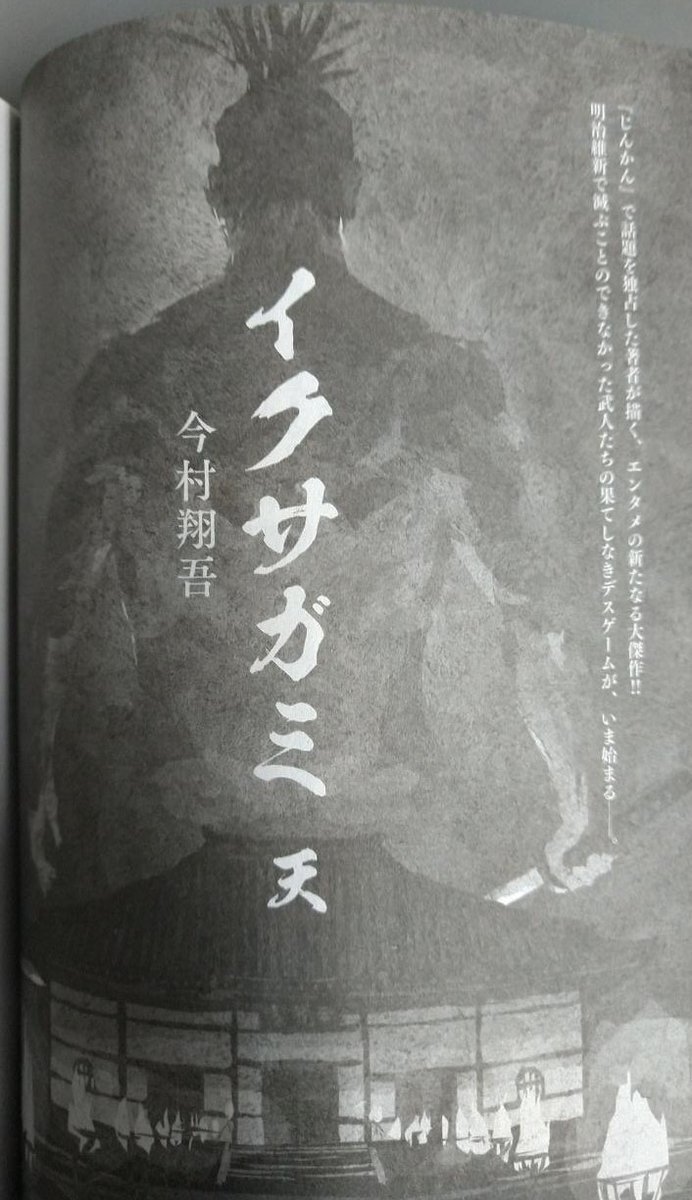 『じんかん』で話題を独占した著者が描く、エンタメの新たなる大傑作!!
明治維新で滅ぶことのできなかった武人たちの果てしなきデスゲームが、いま始まる――。
イクサガミ 天
今村翔吾